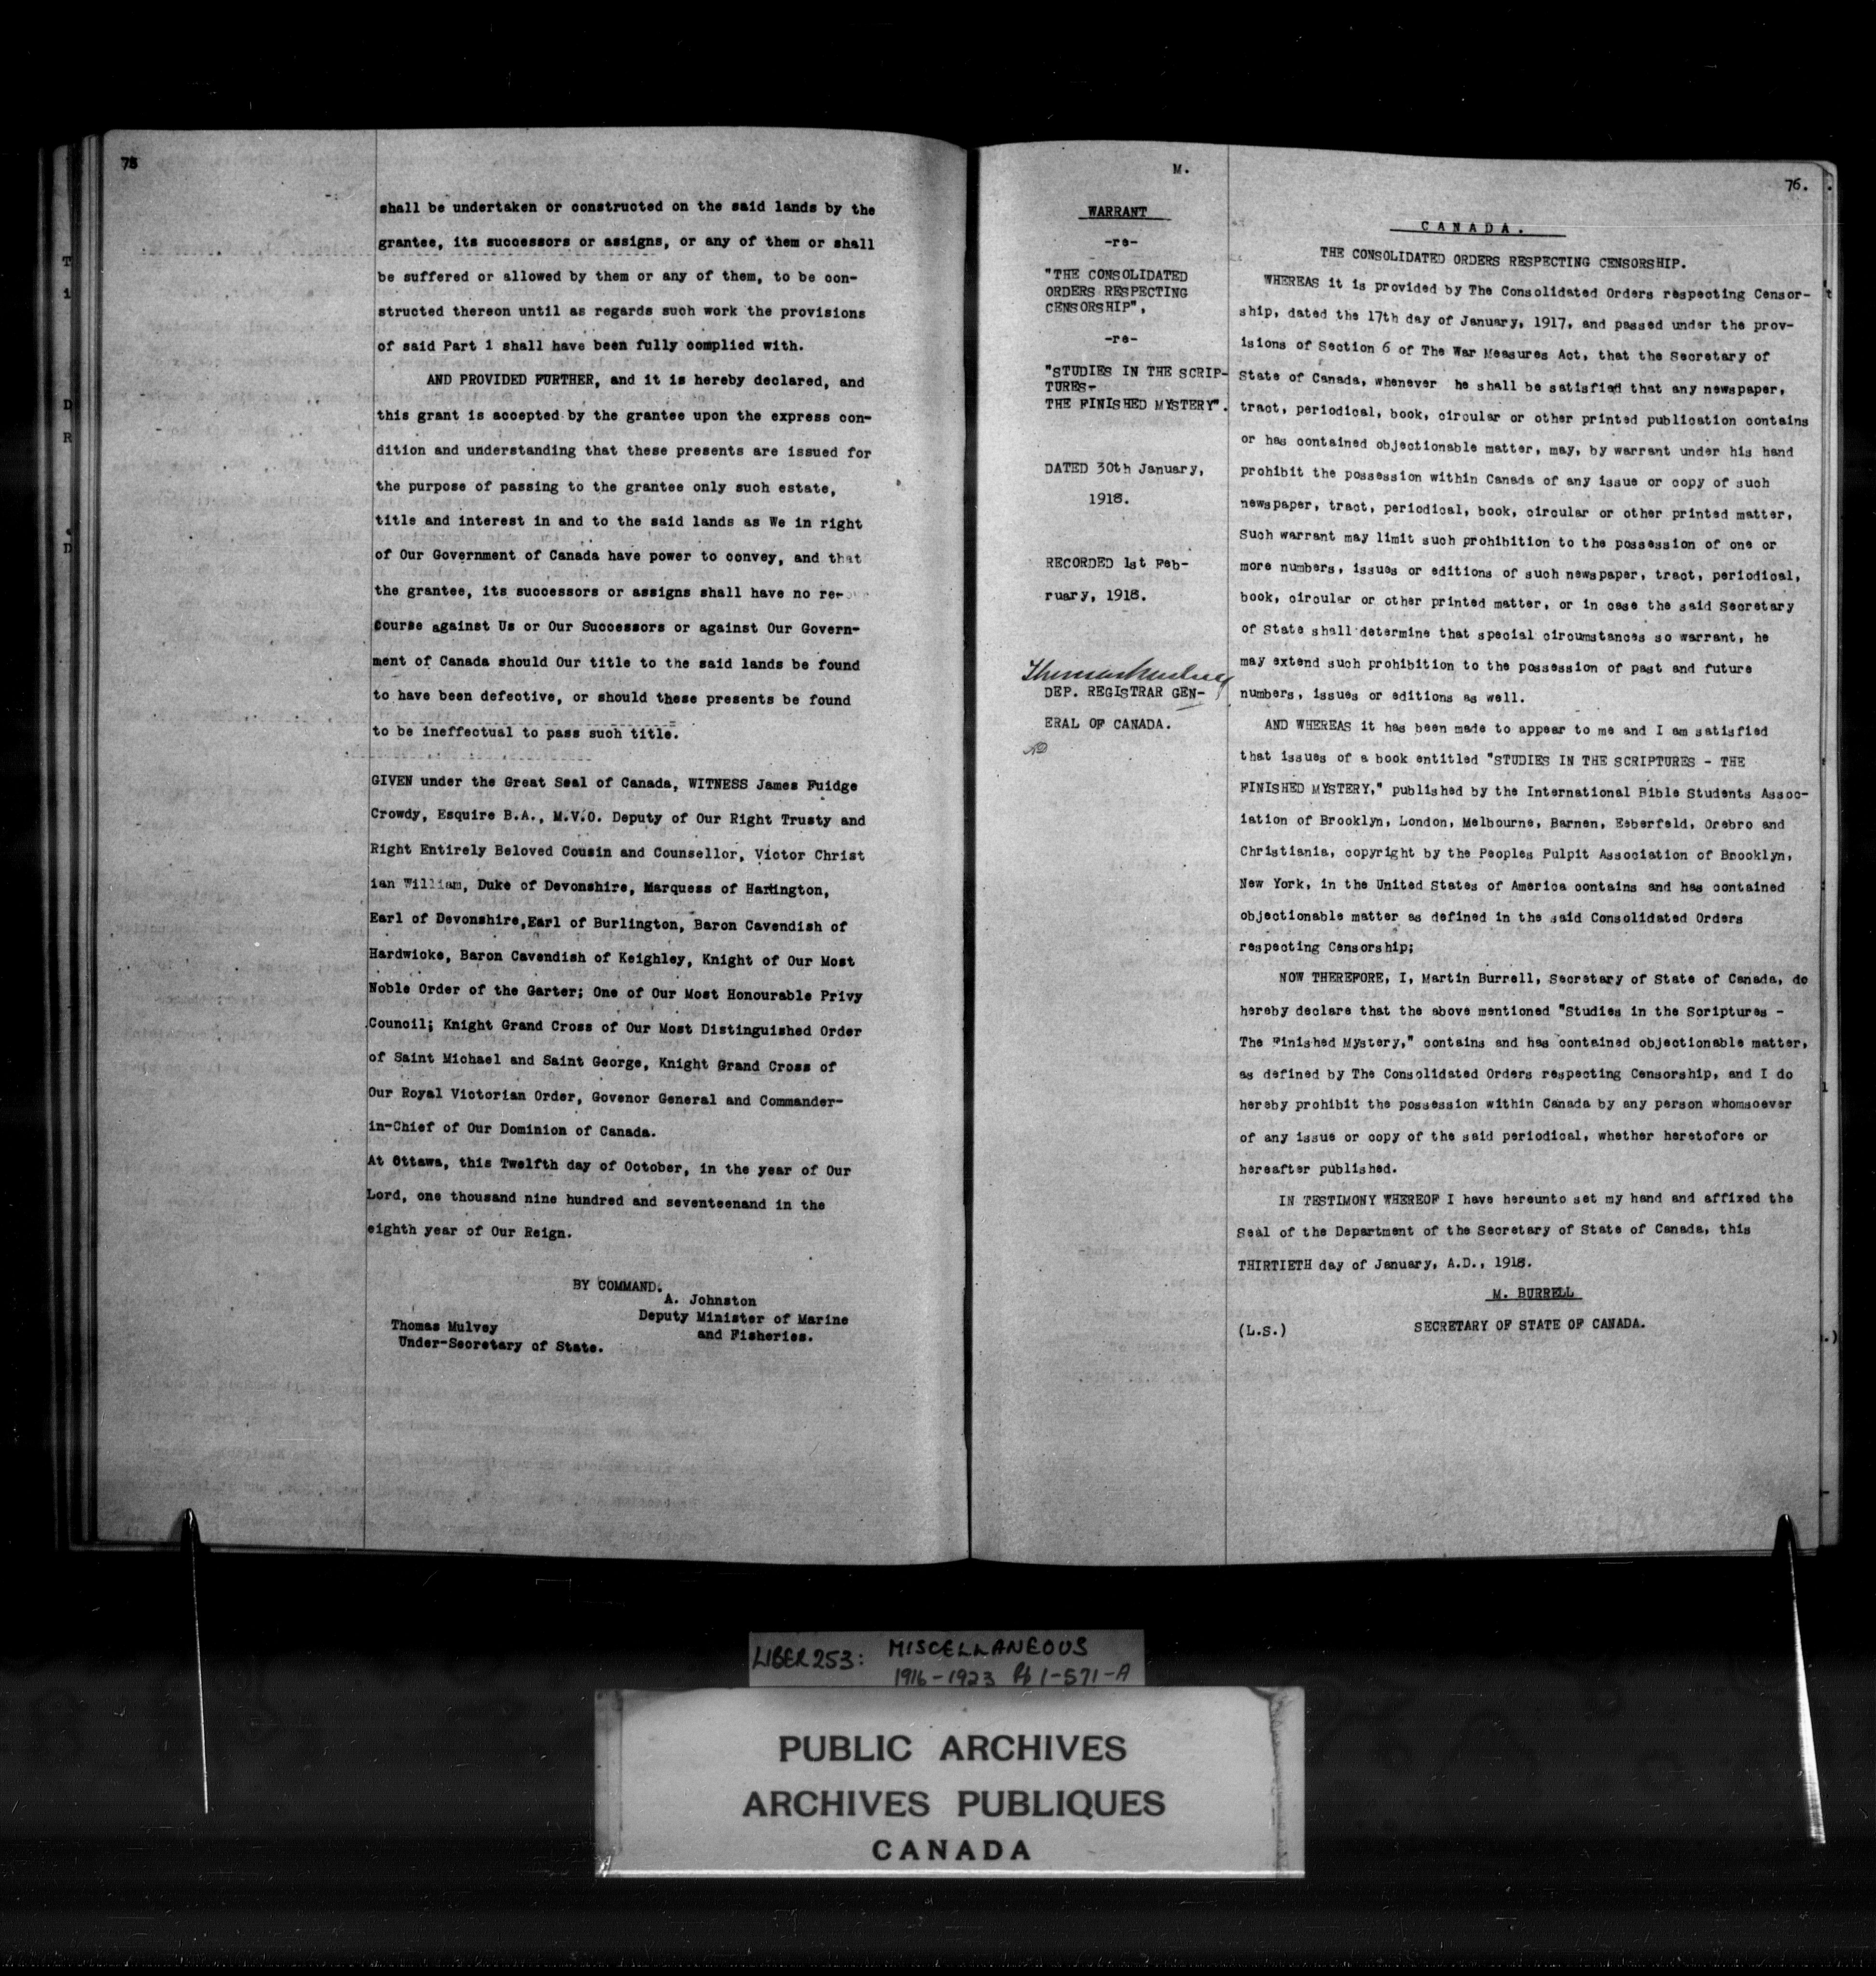 75
shall be undertaken or constructed on the said lands by the
grantee, its successors or assigns, or any of them or shall
be suffered or allowed by them or any of them, to be con-
structed thereon until as regards such work the provisions
of said Part 1 shall have been fully complied with.
AND PROVIDED FURTHER, and it is hereby declared, and
this grant is accepted by the grantee upon the express con-
dition and understanding that these presents are issued for
the purpose of passing to the grantee only such estate,
title and interest in and to the said lands as We in right
of Our Government of Canada have power to convey, and that
the grantee, its successors or assigns shall have no re-
course against Us or Our Successors or against Our Govern-
ment of Canada should Our title to the said lands be found
to have been defective, or should these presents be found
to be ineffectual to pass such title.
GIVEN under the Great Seal of Canada, WITNESS James Fuidge
Crowdy, Esquire B.A., M.V.O. Deputy of Our Right Trusty and
Right Entirely Beloved Cousin and Counsellor, Victor Christ
ian William, Duke of Devonshire, Marquess of Hartington,
Earl of Devonshire,Earl of Burlington, Baron Cavendish of
Hardwicke, Baron Cavendish of Keighley, Knight of Our Most
Noble Order of the Garter; One of Our Most Honourable Privy
Council; Knight Grand Cross of Our Most Distinguished Order
of Saint Michael and Saint George, Knight Grand Cross of
Our Royal Victorian Order, Govenor General and Commander-
in-Chief of Our Dominion of Canada.
At Ottawa, this Twelfth day of October, in the year of Our
Lord, one thousand nine hundred and seventeenand in the
eighth year of Our Reign.
BY COMMAND.
A. Johnston
Deputy Minister of Marine
and Fisheries.
Thomas Mulvey
Under-Secretary of State.
M.
76.
WARRANT
-re-
"THE CONSOLIDATED
ORDERS RESPECTING
CENSORSHIP",
-re-
"STUDIES IN THE SCRIP-
TURES-
THE FINISHED MYSTERY".
DATED 30th January,
1918.
RECORDED 1st Feb-
ruary, 1918.
Thomas Mulvey
DEP. REGISTRAR GEN-
ERAL OF CANADA.
CANADA.
THE CONSOLIDATED ORDERS RESPECTING CENSORSHIP.
WHEREAS it is provided by The Consolidated Orders respecting Censor-
ship, dated the 17th day of January, 1917, and passed under the prov-
isions of Section 6 of The War Measures Act, that the Secretary of
State of Canada, whenever he shall be satisfied that any newspaper,
tract, periodical, book, circular or other printed publication contains
or has contained objectionable matter, may, by warrant under his hand
prohibit the possession within Canada of any issue or copy of such
newspaper, tract, periodical, book, circular or other printed matter,
Such warrant may limit such prohibition to the possession of one or
more numbers, issues or editions of such newspaper, tract, periodical,
book, circular or other printed matter, or in case the said Secretary
of State shall determine that special circumstances so warrant, he
may extend such prohibition to the possession of past and future
numbers, issues or editions as well.
AND WHEREAS it has been made to appear to me and I am satisfied
that issues of a book entitled "STUDIES IN THE SCRIPTURES - THE
FINISHED MYSTERY," published by the International Bible Students Assoc-
iation of Brooklyn, London, Melbourne, Barnen, Eeberfeld, Orebro and
Christiania, copyright by the Peoples Pulpit Association of Brooklyn,
New York, in the United States of America contains and has contained
objectionable matter as defined in the said Consolidated Orders
respecting Censorship;
NOW THEREFORE, I, Martin Burrell, Secretary of State of Canada, do
hereby declare that the above mentioned "Studies in the Scriptures -
The Finished Mystery," contains and has contained objectionable matter,
as defined by The Consolidated Orders respecting Censorship, and I do
hereby prohibit the possession within Canada by any person whomsoever
of any issue or copy of the said periodical, whether heretofore or
hereafter published.
IN TESTIMONY WHEREOF I have hereunto set my hand and affixed the
Seal of the Department of the Secretary of State of Canada, this
THIRTIETH day of January, A.D., 1918.
M. BURRELL
SECRETARY OF STATE OF CANADA.
(L.S.)
LIBER 253: MISCELLANEOUS
1916-1923 Pp 1-571-A
PUBLIC ARCHIVES
ARCHIVES PUBLIQUES
CANADA